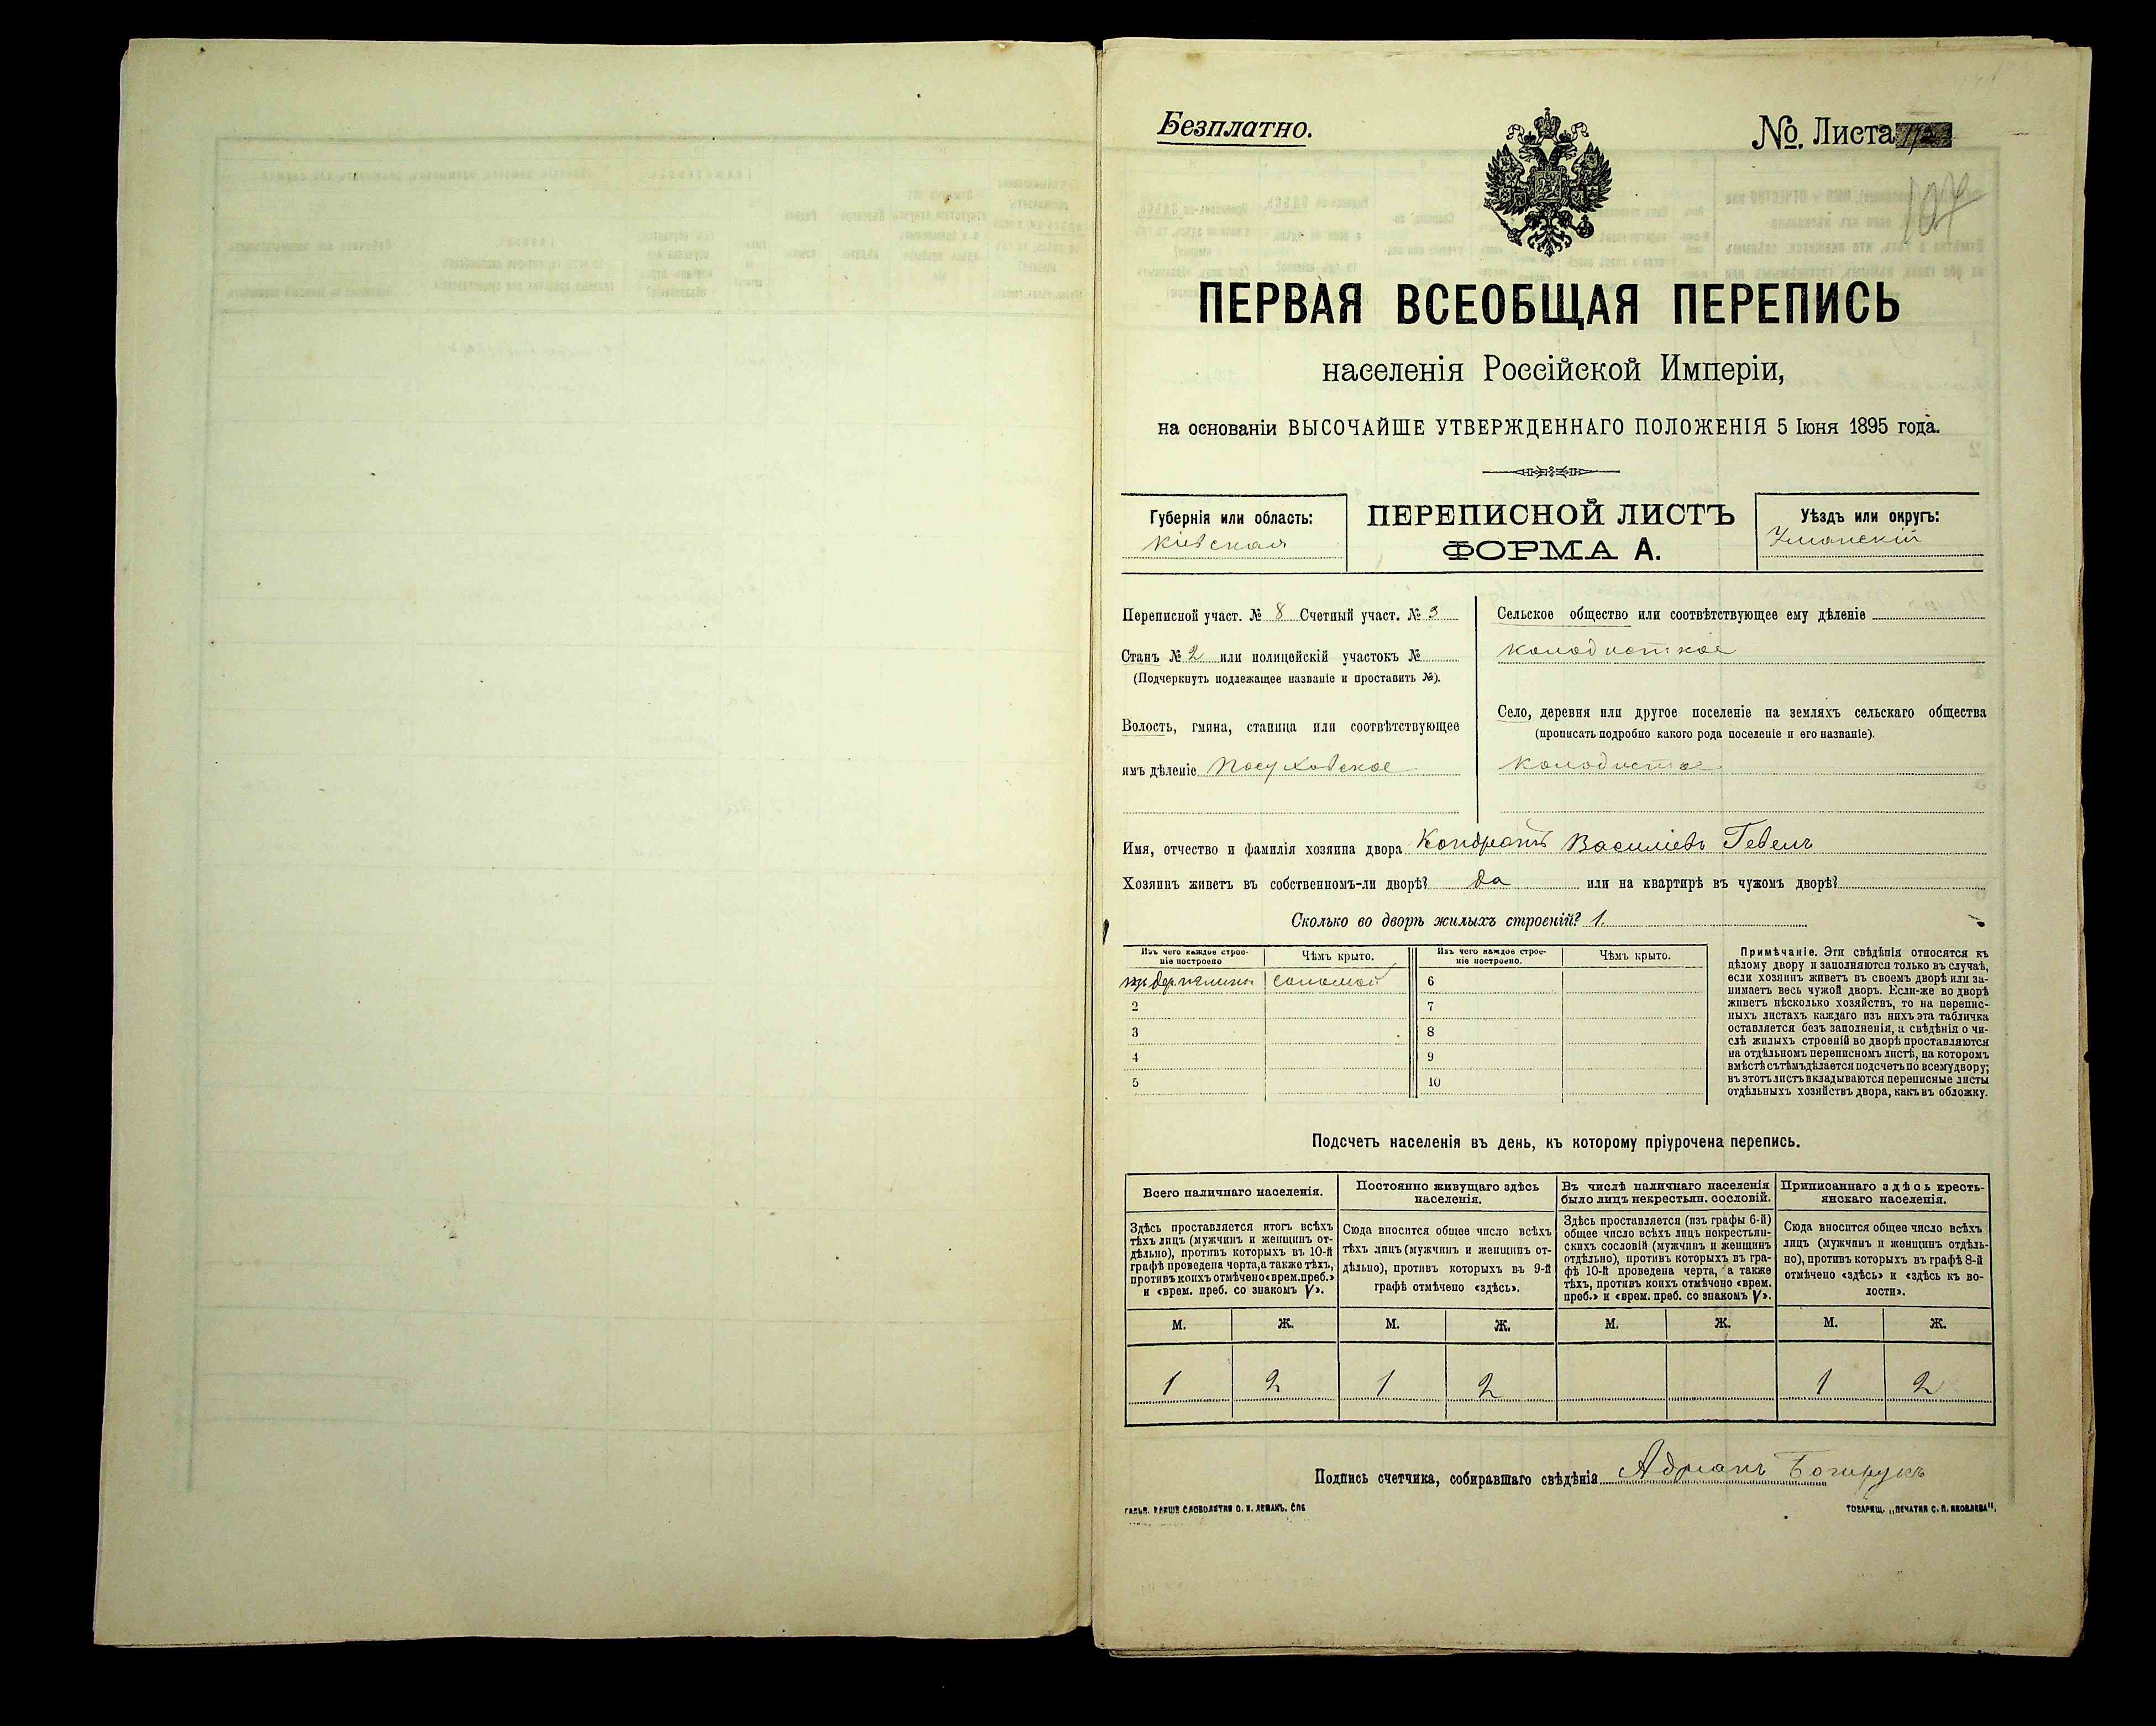 Безплатно.
№. Листа
107
ПЕРВАЯ ВСЕОБЩАЯ ПЕРЕПИСЬ
населенія Россійской Имперіи,
на основаніи ВЫСОЧАЙШЕ УТВЕРЖДЕННАГО ПОЛОЖЕНІЯ 5 Іюня 1895 года.
Губернія или область:
Кіевская
ПЕРЕПИСНОЙ ЛИСТЪ
ФОРМА А.
Уѣздъ или округъ:
Уманскій
Переписной участ. № 8 Счетный участ. № 3
Станъ № 2 или полицейскій участокъ №
(Подчеркнуть подлежащее названіе и проставить №).
Волость, гмина, станица или соотвѣтствующее
имъ дѣленіе Посуховское
Сельское общество или соотвѣтствующее ему дѣленіе
Колодисткое
Село, деревня или другое поселеніе на земляхъ сельскаго общества
(прописать подробно какого рода поселеніе и его названіе).
Колодистое
Имя, отчество и фамилія хозяина двора Кондратъ Василіевъ Гевелъ
Хозяинъ живетъ въ собственномъ-ли дворѣ? да или на квартирѣ въ чужомъ дворѣ?
Сколько во дворѣ жилыхъ строеній? 1.
Изъ чего каждое строе-
ніе построено
Чѣмъ крыто.
Изъ чего каждое строе-
ніе построено.
Чѣмъ крыто.
соломой
6
2
7
3
8
4
9
5
10
Примѣчаніе. Эти свѣдѣнія относятся къ
цѣлому двору и заполняются только въ случаѣ,
если хозяинъ живетъ въ своемъ дворѣ или за-
нимаетъ весь чужой дворъ. Если-же во дворѣ
живетъ нѣсколько хозяйствъ, то на перепис-
ныхъ листахъ каждаго изъ нихъ эта табличка
оставляется безъ заполненія, а свѣдѣнія о чи-
слѣ жилыхъ строеній во дворѣ проставляются
на отдѣльномъ переписномъ листѣ, на которомъ
вмѣстѣ съ тѣмъ дѣлается подсчетъ по всему двору;
въ этотъ листъ вкладываются переписные листы
отдѣльныхъ хозяйствъ двора, какъ въ обложку.
Подсчетъ населенія въ день, къ которому пріурочена перепись.
Всего наличнаго населенія.
Постоянно живущаго здѣсь
населенія.
Въ числѣ наличнаго населенія
было лицъ некрестьян. сословій.
Приписаннаго здѣсь кресть-
янскаго населенія.
Здѣсь проставляется итогъ всѣхъ
тѣхъ лицъ (мужчинъ и женщинъ от-
дѣльно), противъ которыхъ въ 10-й
графѣ проведена черта, а также тѣхъ,
противъ коихъ отмѣчено «врем. преб.»
и «врем. преб. со знакомъ V».
Сюда вносится общее число всѣхъ
тѣхъ лицъ (мужчинъ и женщинъ от-
дѣльно), противъ которыхъ въ 9-й
графѣ отмѣчено «здѣсь».
Здѣсь проставляется (изъ графы 6-й)
общее число всѣхъ лицъ некрестьян-
скихъ сословій (мужчинъ и женщинъ
отдѣльно), противъ которыхъ въ гра-
фѣ 10-й проведена черта, а также
тѣхъ, противъ коихъ отмѣчено «врем.
преб.» и «врем. преб. со знакомъ V».
Сюда вносится общее число всѣхъ
лицъ (мужчинъ и женщинъ отдѣль-
но), противъ которыхъ въ графѣ 8-й
отмѣчено «здѣсь» и «здѣсь къ во-
лости».
М. Ж. М. Ж. М. Ж. М. Ж.
1 2 1 2 1 2
Подпись счетчика, собиравшаго свѣдѣнія Адріанъ Богирукъ
ГАЛЬВ. КЛИШЕ СЛОВОЛИТНИ О. И. ЛЕМАНЪ. СПБ
ТОВАРИЩ. „ПЕЧАТНЯ С. П. ЯКОВЛЕВА“.